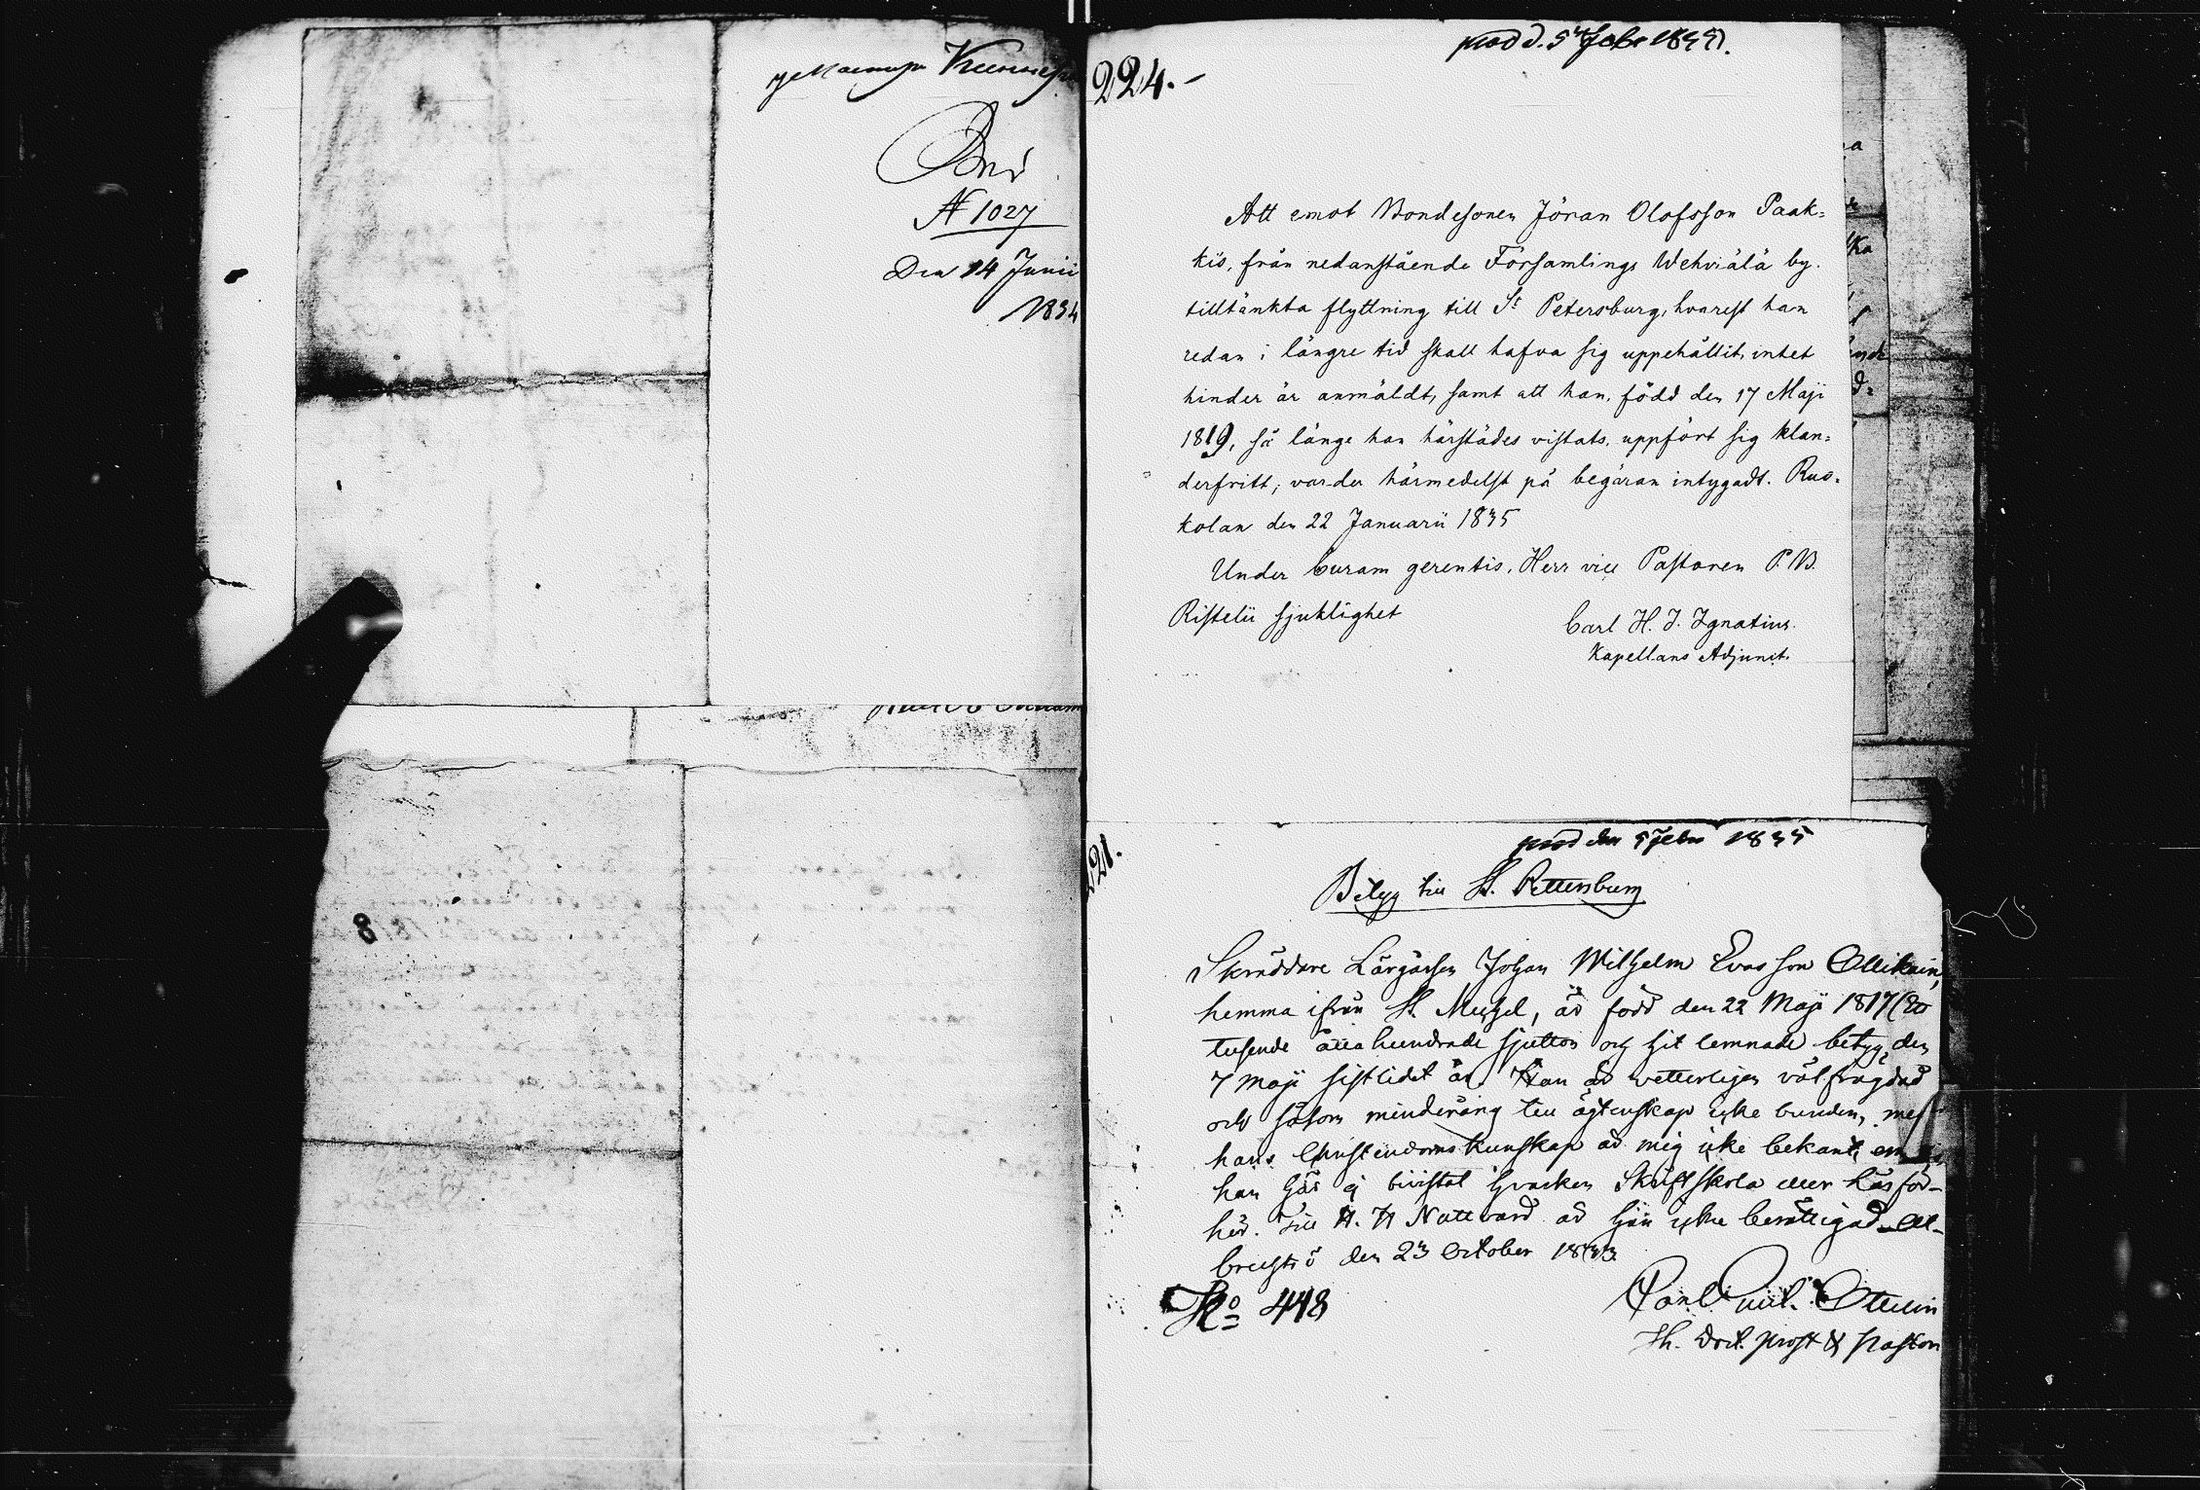 Den
№ 1027
Den 14 Junii
1834
224.
prod d. 5 Febr 1835.
Att emot Bondesonen Jöran Olofsson Paak=
kis, från nedanstående Församlings Wehviälä by
tilltänkta flyttning till St Petersburg, hvarest han
redan i längre tid skall hafva sig uppehållit, intet
hinder är anmäldt, samt att han, född den 17 Maji
1819, så länge han härstädes vistats, uppfört sig klan=
derfritt; varder härmedelst på begäran intygadt. Rus=
kolan den 22 Januarii 1835
Under Curam gerentis, Herr vice Pastoren P. B.
Ristelii sjuklighet
Carl H. J. Ignatius.
Kapellans Adjunct.
221.
prod den 5 Febr 1835
Betyg till St. Pettersburg
Skräddare Lärgåssen Johan Wilhelm Evasson Ollikain,
hemma ifrån St. Michel, är född den 22 Maji 1817 (Ett
tusende åtta hundrade sjutton och hit lemnade betyg den
7 Maji sistlidet år. Han är vetterligen välfrägdad
och såsom minderårig till ägtenskap icke bunden, men
hans Christendoms kunskap är mig icke bekant,
han här ej bivistat hvarken Skriftskola eller Läsför-
hör. Till H. H. Nattvard är han icke berättigad.
den 23 October 1833
No 448
Th. Doct. Prost & Pastor